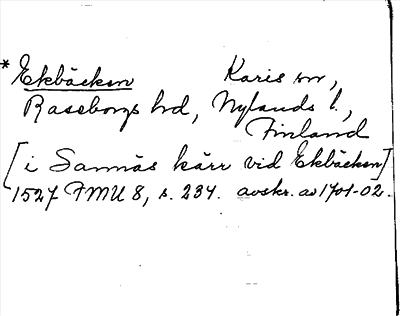 * Ekbäcken Karis sn,
Raseborgs hd, Nylands l.,
Finland
[i Sannäs kärr vid Ekbäcken]
1527 FMU 8, s. 234. avskr. av 1701-02.